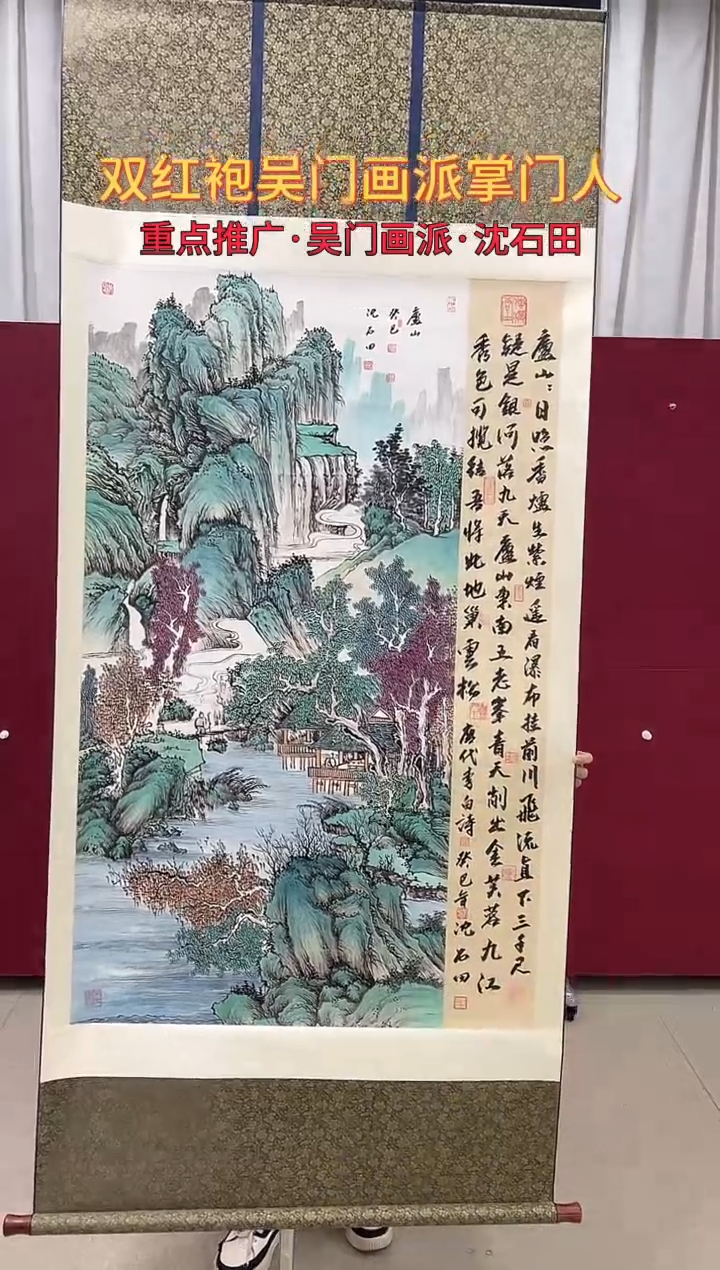 双红袍吴门画派掌门人
重点推广·吴门画派·沈石田
廬山
癸巳
沈石田
廬山:日照香爐生紫煙遙看瀑布挂前川飛流直下三千尺
疑是銀河落九天廬山東南五老峯青天削出金芙蓉九江
秀色可攬結吾将此地巢雲松
唐代李白詩
癸巳年
沈石田